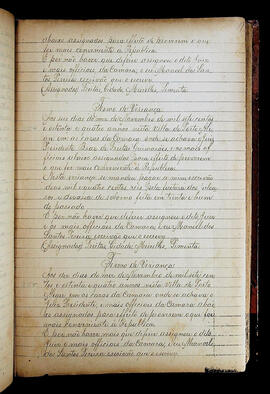 abaixo assignados para effeito de proverem o que
for mais conveniente a Republica.
E por não haver que deferir assignou o dito Juiz
e mais officiaes da Camara, eu Manoel dos San-
tos Pereira escrivão que o escrevi.
(Assignados) Freitas, Cidade, Murilhe, Pimenta.
Termo de Veriança
Aos seis dias do mez de Novembro de mil setecentos
e oitenta e quatro annos nesta Villa de Porto Ale-
gre em as casas da Camara onde se achava o Juiz
Presidente Braz de Freitas Guimarães e os mais of-
ficiaes abaixo assignados para effeito de proverem o
que for mais conveniente a Republica.
Nesta veriança se mandou pagar a mim escrivão
dois mil e quatro centos réis
e devassa de suborno feita em trinta e hum
do passado
E por não haver que deferir assignou o dito Juiz
e os mais officiaes da Camara, eu Manoel dos
Santos Pereira escrivão que o escrevi.
(Assignados) Freitas, Cidade, Murilhe, Pimenta.
Termo de Veriança
Aos dez dias do mez de Novembro de mil sete cen-
tos e oitenta e quatro annos nesta Villa de Porto
Alegre em as casas da Camara onde se achava o
Juiz Presidente, e mais officiaes da Camara abai-
xo assignados para effeito de proverem o que for
mais conveniente a Republica.
E por não haver que deferir assignou o dito
Juiz e mais officiaes da Camara, eu Manoel
dos Santos Pereira escrivão que o escrevi.